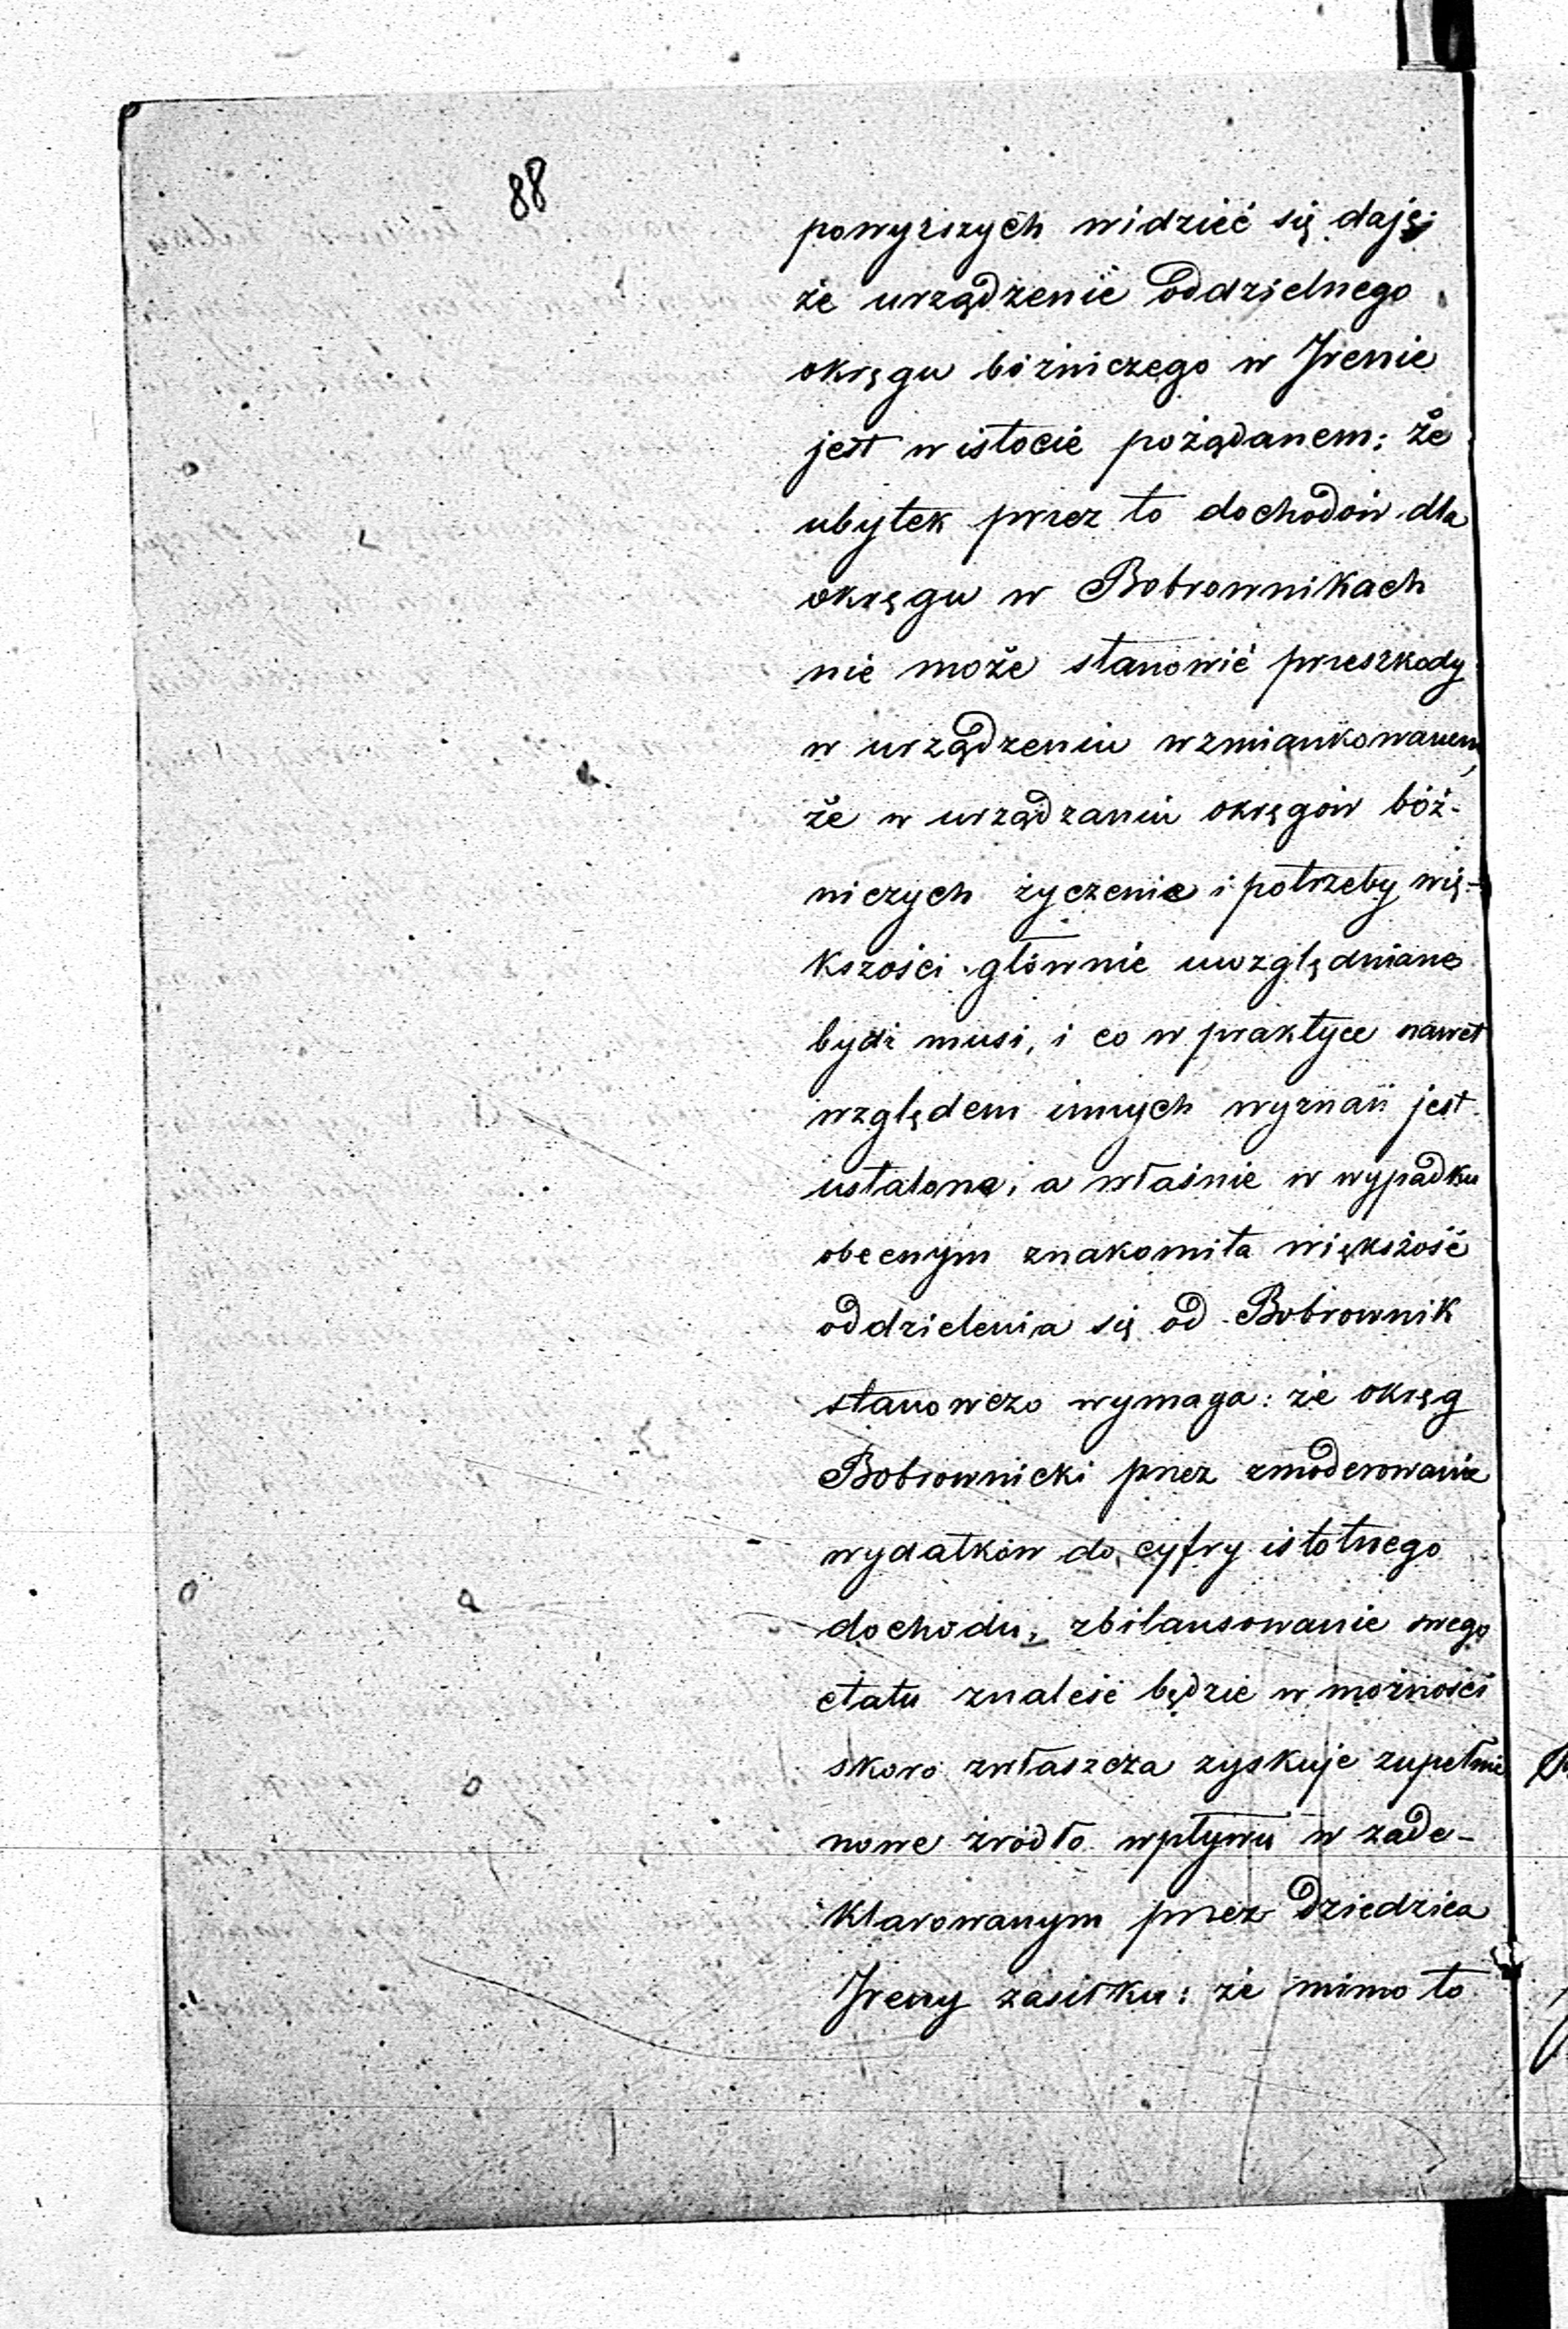 88
powyższych widzieć się daję;
że urządzenie oddzielnego
okręgu bóżniczego w Irenie
jest w istocie pożądanem: że
ubytek przez to dochodów dla
okręgu w Bobrownikach
nie może stanowić przeszkody
w urządzeniu wzmiankowanem,
że w urządzaniu okręgów bóż-
niczych życzenie i potrzeby wię-
kszości głównie uwzględniane
bydź musi, i co w praktyce nawet
względem innych wyznań jest
ustalone, a właśnie w wypadku
obecnym znakomita większość
oddzielenia się od Bobrownik
stanowczo wymaga: że okręg
Bobrownicki przez zmoderowanie
wydatków do cyfry istotnego
dochodu, zbilansowanie swego
etatu znaleść będzie w możności
skoro zwłaszcza zyskuje zupełnie
nowe źródło wpływu w zade-
klarowanym przez Dziedzica
Ireny zasiłku: że mimo to